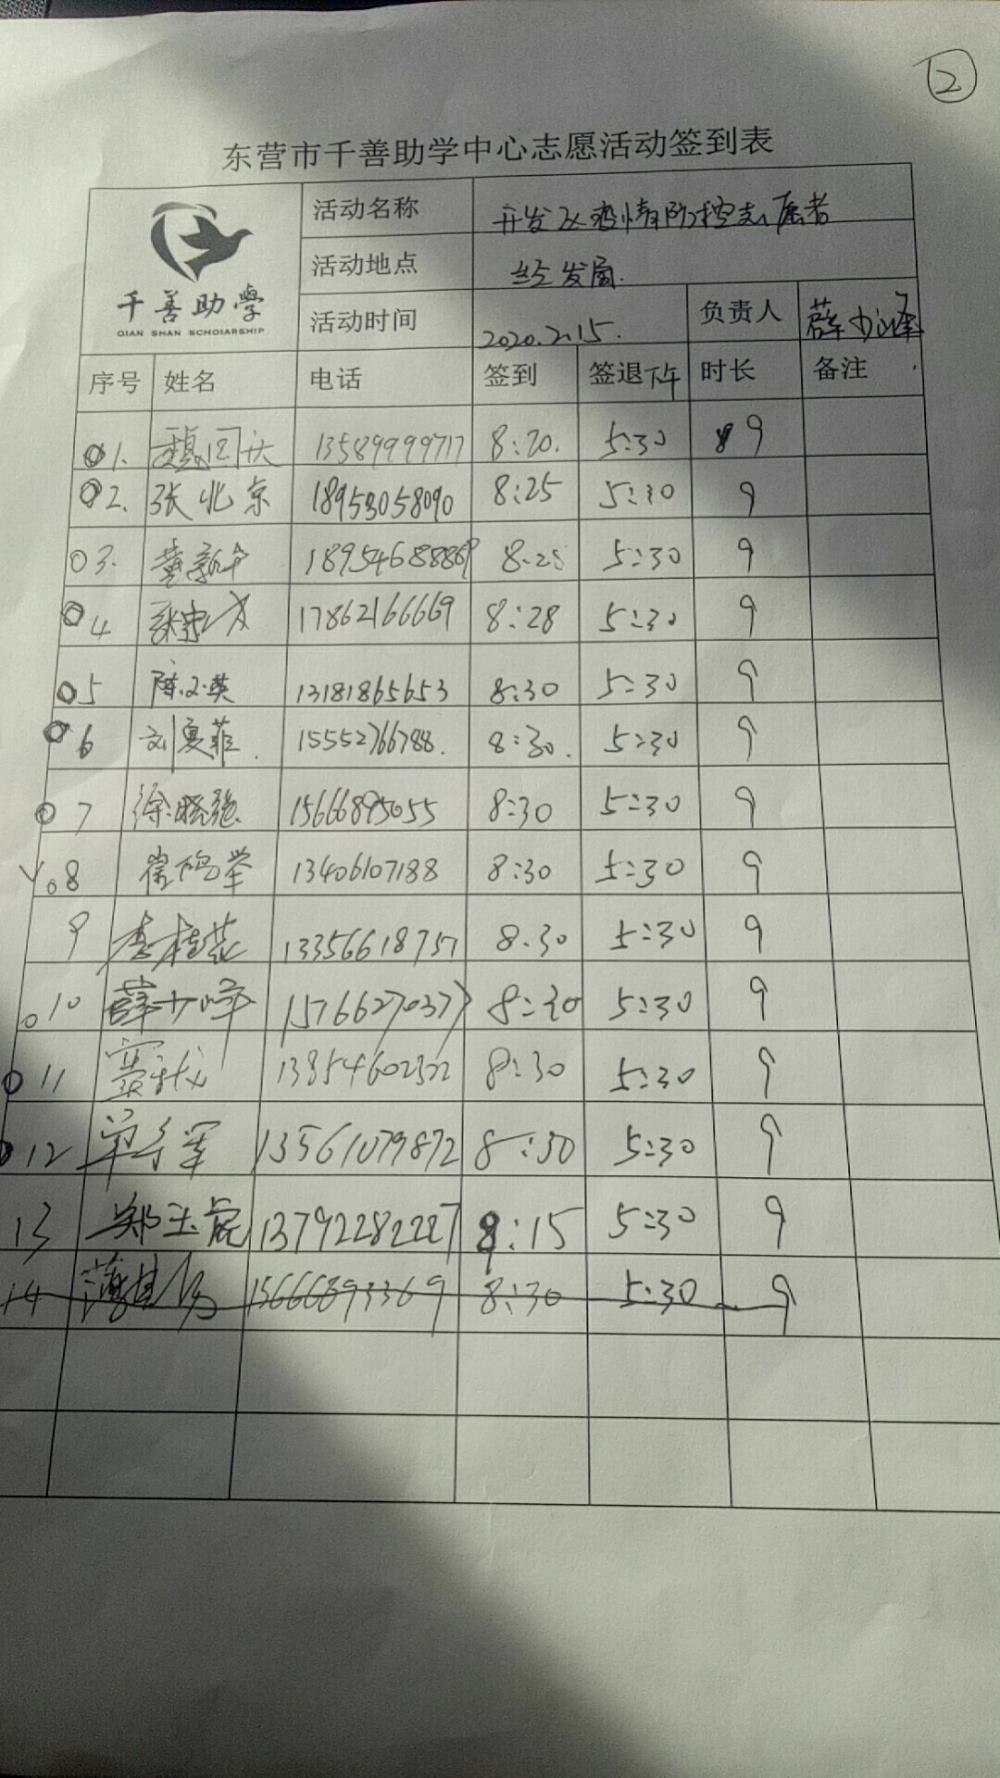 2
东营市千善助学中心志愿活动签到表
千善助學
QIAN SHAN SCHOIARSHIP
活动名称 开发区疫情防控志愿者
活动地点 经发局.
活动时间 2020.2.15. 负责人 薛少峰
序号 姓名 电话 签到 签退下午 时长 备注
01. 魏国庆 13589999717 8:20. 5:30 9
02. 张北京 18953058090 8:25 5:30 9
03. 18954688869 8.25 5:30 9
04 17862166669 8:28 5:30 9
05 陈文英 13181865653 8:30 5:30 9
06 刘夏菲. 15552766788. 8:30. 5:30 9
07 徐晓强 15666895055 8:30 5:30 9
08 13406107188 8:30 5:30 9
9 李桂花 13356618751 8.30 5:30 9
010 薛少峰 15766270377 8:30 5:30 9
011 13854602322 8:30 5:30 9
012 13561079872 8:30 5:30 9
13 郑玉虎 13792282227 8:15 5:30 9
14 15666893369 8:30 5:30 9